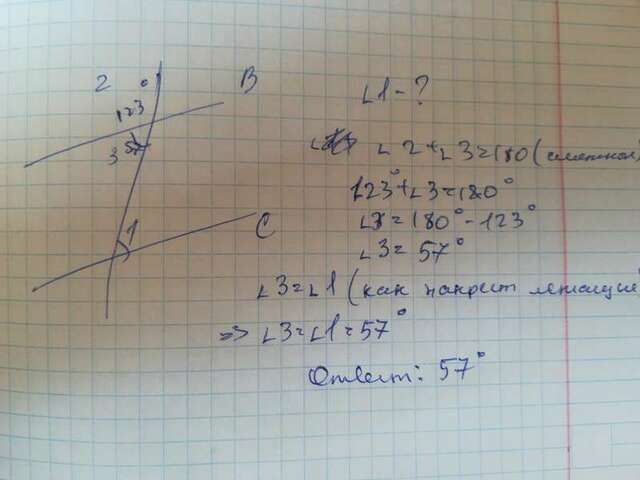 2 B
123°
3 57°
1
C
∠1 - ?
∠2 + ∠3 = 180 (смежные)
123° + ∠3 = 180°
∠3 = 180° - 123°
∠3 = 57°
∠3 = ∠1 (как накрест лежащие
=> ∠3 = ∠1 = 57°
Ответ: 57°